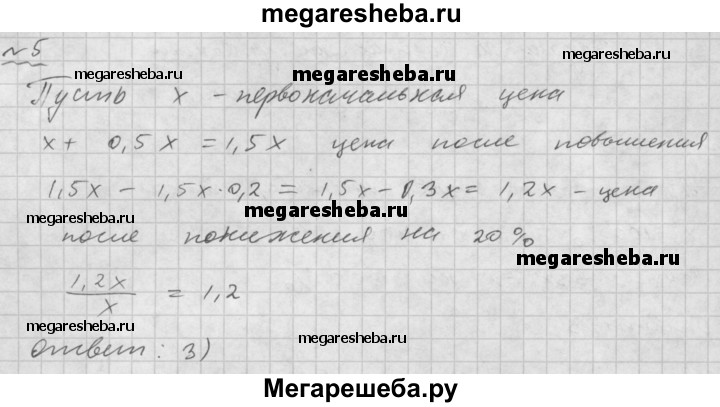 megaresheba.ru
№5
megaresheba.ru
megaresheba.ru
megaresheba.ru
Пусть x - первоначальная цена
x + 0,5x = 1,5x цена после повышения
1,5x - 1,5x·0,2 = 1,5x - 0,3x = 1,2x - цена
megaresheba.ru
megaresheba.ru
после понижения на 20%
megaresheba.ru
1,2x/x = 1,2
megaresheba.ru
megaresheba.ru
Ответ: 3)
Мегарешеба.ру